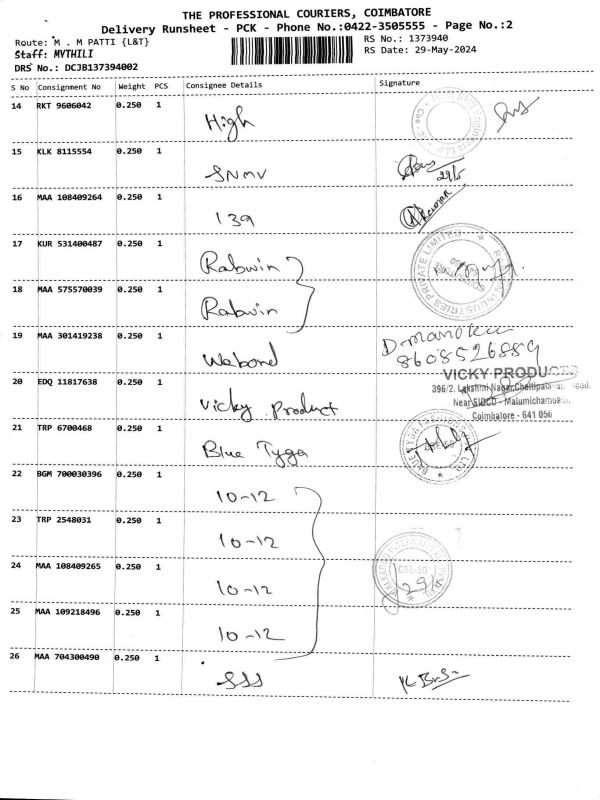 THE PROFESSIONAL COURIERS, COIMBATORE
Delivery Runsheet - PCK - Phone No.:0422-3505555 - Page No.:2
Route: M . M PATTI {L&T} RS No.: 1373940
Staff: MYTHILI RS Date: 29-May-2024
DRS No.: DCJB137394002
S No Consignment No Weight PCS Consignee Details Signature
14 RKT 9606042 0.250 1 High
15 KLK 8115554 0.250 1 SNMV 29/5
16 MAA 108409264 0.250 1 139
17 KUR 531400487 0.250 1 Rabwin
18 MAA 575570039 0.250 1 Rabwin
19 MAA 301419238 0.250 1 Wabond D. manoku
8608526889
20 EDQ 11817638 0.250 1 Vicky Product VICKY PRODUCTS
396/2, Lakshmi Nagar, Road,
Near SIDCO - Malumichampatti,
Coimbatore - 641 050
21 TRP 6700468 0.250 1 Blue Tyga
22 BGM 700030396 0.250 1 10-12
23 TRP 2548031 0.250 1 10-12
24 MAA 108409265 0.250 1 10-12
25 MAA 109218496 0.250 1 10-12
26 MAA 704300490 0.250 1 SSS